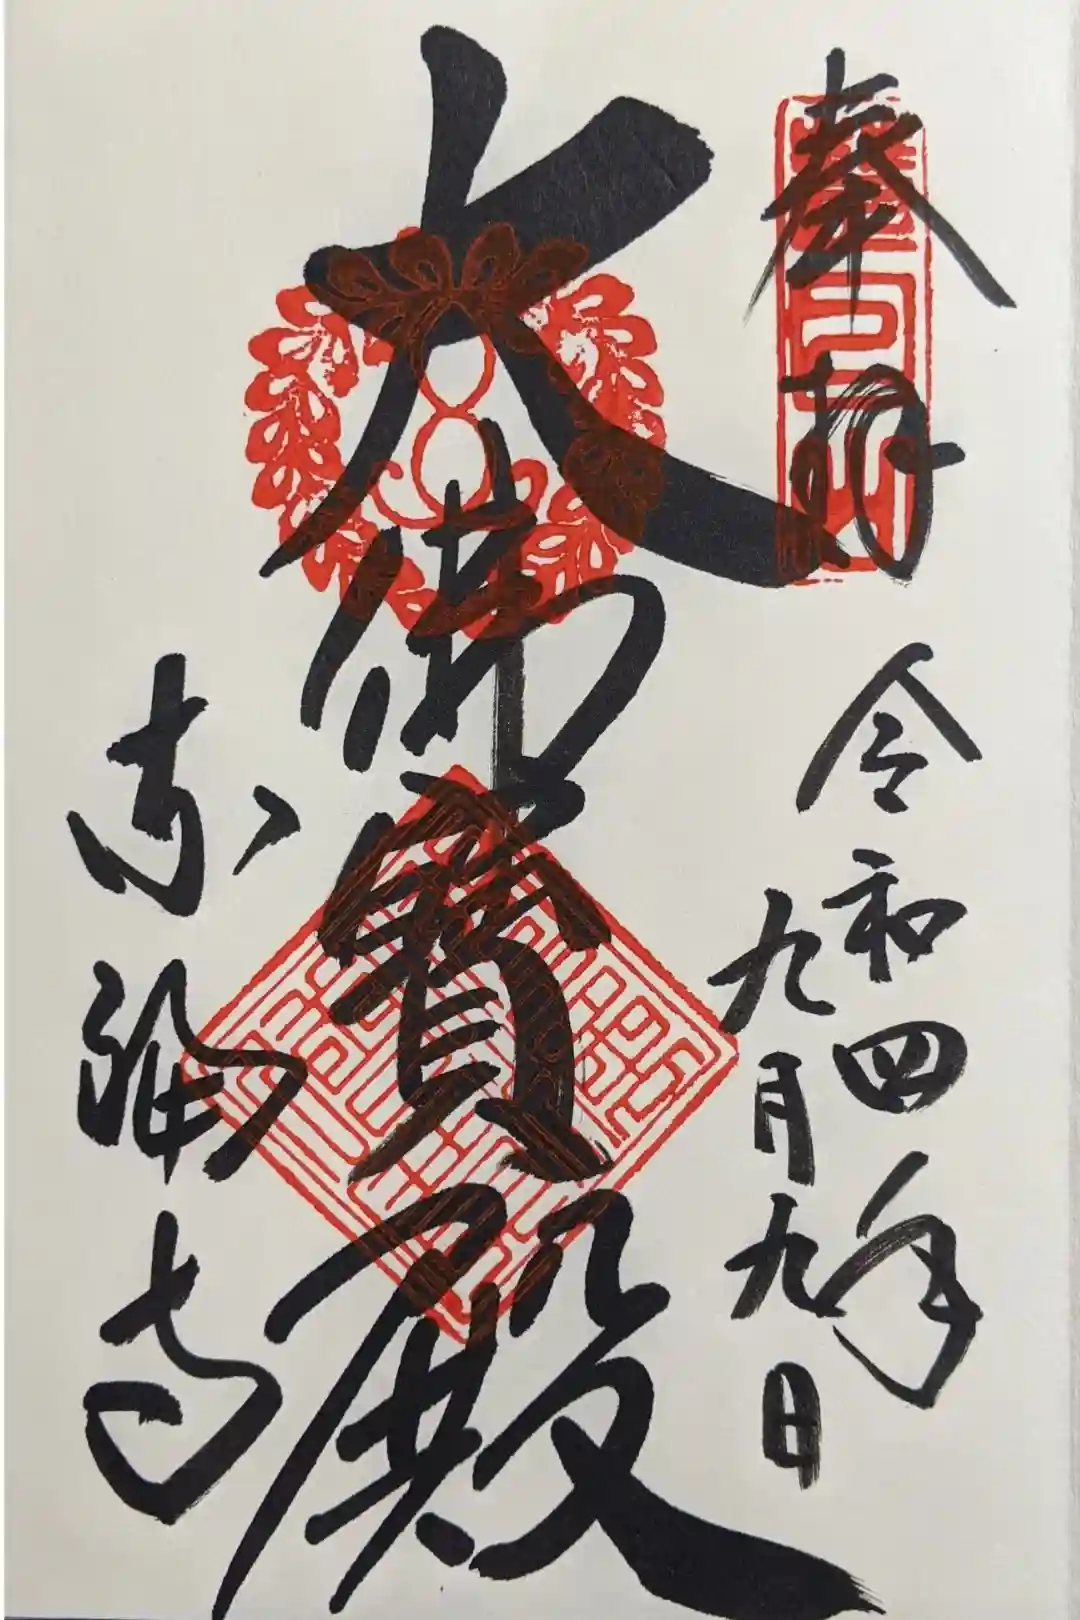 奉拝
慧日山
令和四年
九月九日
大佛寶殿
東福寺